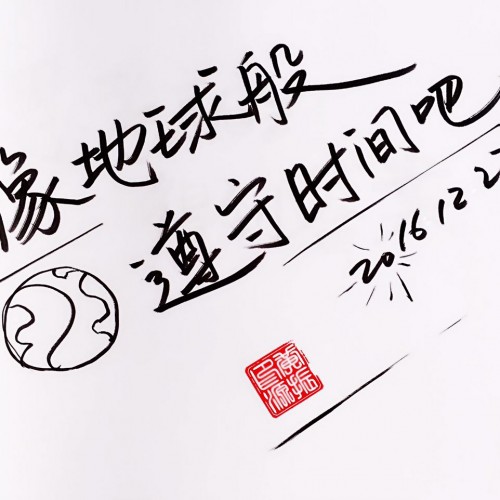 像地球般
遵守时间吧
2016 12 2